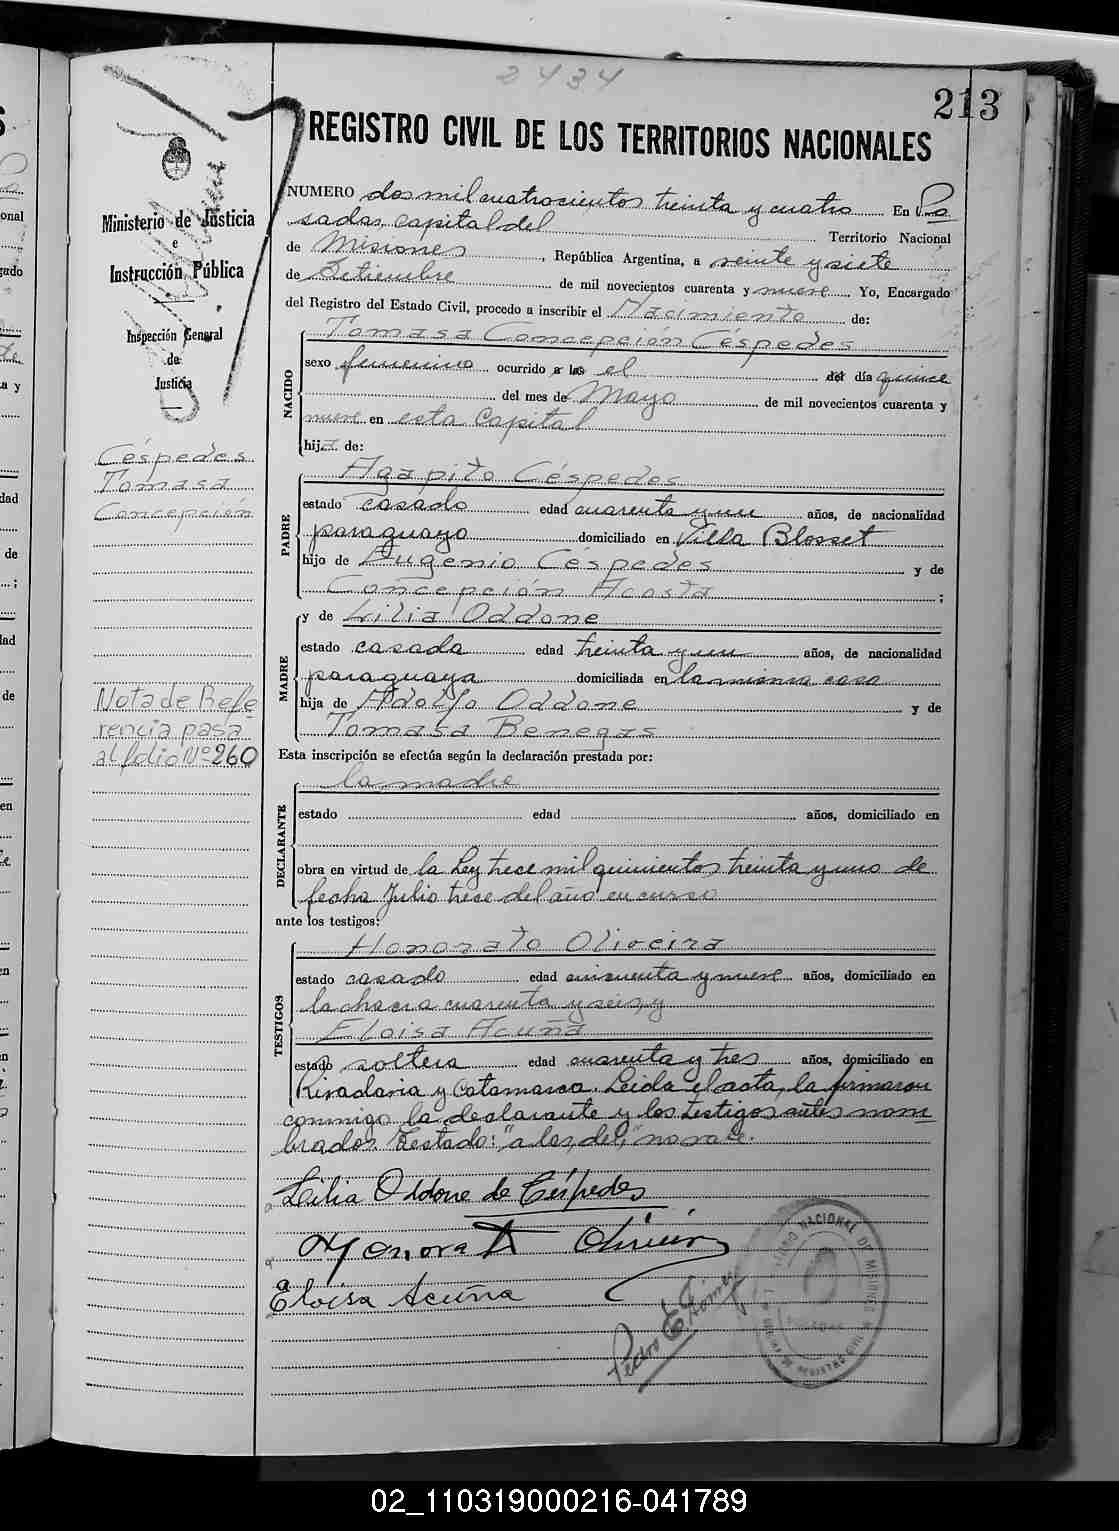 2434
213
REGISTRO CIVIL DE LOS TERRITORIOS NACIONALES
Ministerio de Justicia
e
Instrucción Pública
Inspección General
de
Justicia
Céspedes
Tomasa
Concepción
Nota de Refe-
rencia pasa
al folio Nº 260
NUMERO dos mil cuatrocientos treinta y cuatro En Po
sadas, capital del Territorio Nacional
de Misiones, República Argentina, a veinte y siete
de Setiembre de mil novecientos cuarenta y nueve Yo, Encargado
del Registro del Estado Civil, procedo a inscribir el Nacimiento de:
NACIDO
Tomasa Concepción Céspedes
sexo femenino ocurrido a las el del día quince
del mes de Mayo de mil novecientos cuarenta y
nueve en esta Capital
hija de:
PADRE
Agapito Céspedes
estado casado edad cuarenta y un años, de nacionalidad
paraguayo domiciliado en Villa Blosset
hijo de Eugenio Céspedes y de
Concepción Acosta ;
MADRE
y de Lilia Oddone
estado casada edad treinta y un años, de nacionalidad
paraguaya domiciliada en la misma casa
hija de Adolfo Oddone y de
Tomasa Benegas
Esta inscripción se efectúa según la declaración prestada por:
DECLARANTE
la madre
estado edad años, domiciliado en
obra en virtud de la Ley trece mil quinientos treinta y uno de
fecha Julio trece del año en curso
ante los testigos:
TESTIGOS
Honorato Oliveira
estado casado edad cincuenta y nueve años, domiciliado en
la chacra cuarenta y seis, y
Eloisa Acuña
estado soltera edad cuarenta y tres años, domiciliado en
Rivadavia y Catamarca. Leida el acta, la firmaron
conmigo la declarante y los testigos antes nom
brados. Testado: "a las, del," no vale.
Lilia Oddone de Céspedes
Honorato Oliveira
Eloisa Acuña
Pedro E. Gómez
02_110319000216-041789